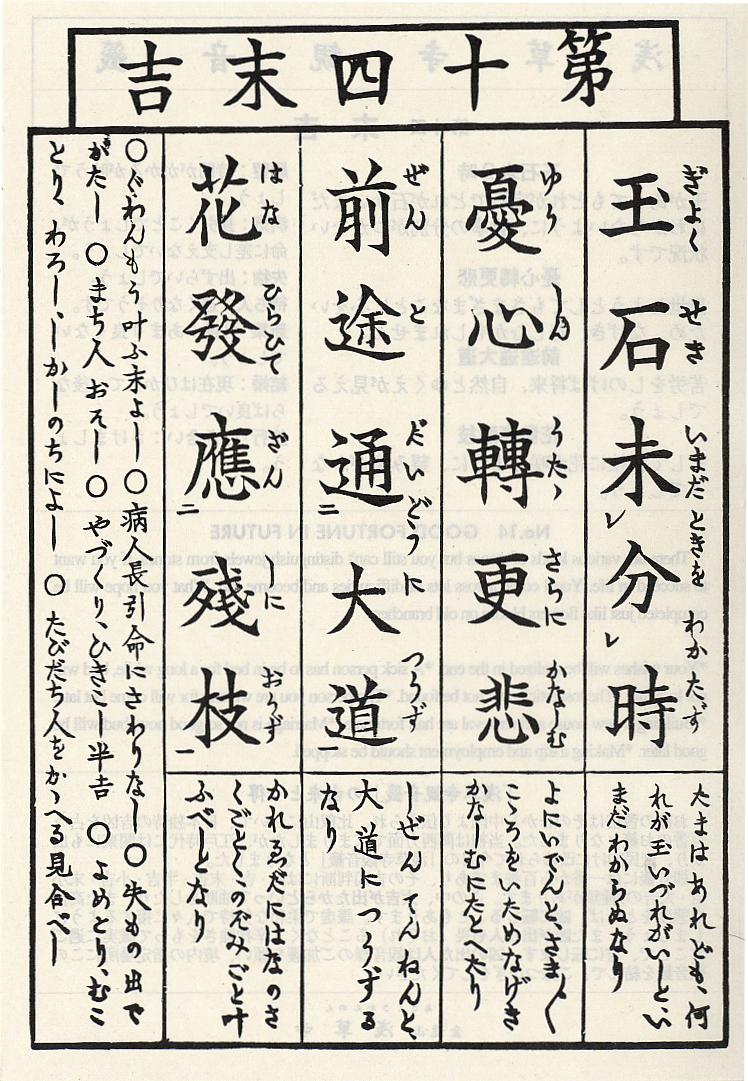 第十四末吉
玉石未分時
ぎよく せき いまだ ときを わかたず
たまはあれども、何
れが玉いづれがいしとい
まだわからぬなり
憂心轉更悲
ゆう しん うたゝ さらに かなしむ
よにいでんとさま〲
こころをいためなげき
かなしむにたとへたり
前途通二大道一
ぜん と だいどうに つうず
しぜんとてんねんと、
大道につうずる
なり
花發應二殘枝一
はな ひらひて ざん しに おうず
かれゑだにはなのさ
くごとしのぞみごと叶
ふべしとなり
〇ぐわんもう叶ふ末よし〇病人長引命にさわりなし〇失もの出で
がたし〇まち人おそし〇やづくり、ひきこし半吉〇よめどり、むこ
とりわろし、しかしのちによし〇たびだち人をかゝへる見合べし